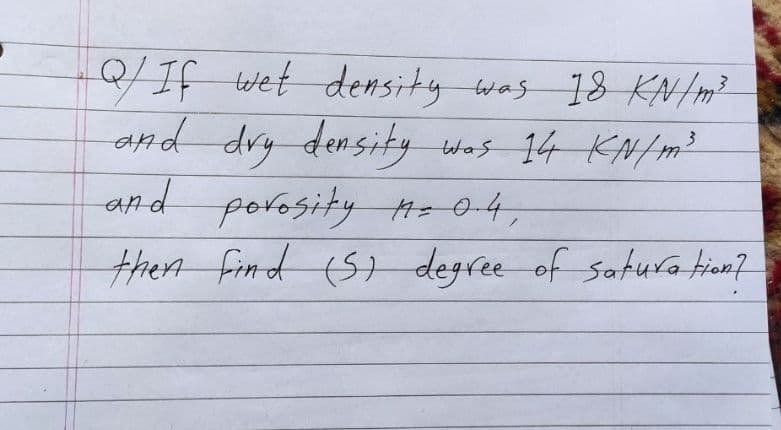 Q/ If wet density was 18 KN/m³
and dry density was 14 KN/m³
and porosity n= 0.4,
then find (S) degree of saturation?